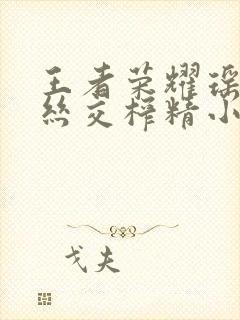 王者荣耀瑶
丝交榨精小
戈夫